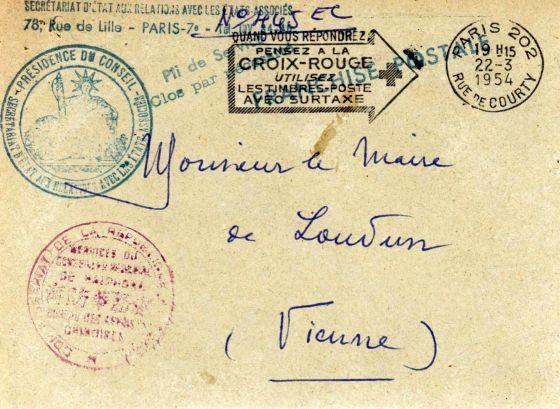 SECRÉTARIAT D'ÉTAT AUX RELATIONS AVEC LES ÉTATS ASSOCIÉS
78, Rue de Lille - PARIS-7e -
No 445 EC
Pli de Service
Clos par
FRANCHISE POSTALE
QUAND VOUS RÉPONDREZ
PENSEZ A LA
CROIX-ROUGE
UTILISEZ
LES TIMBRES-POSTE
AVEC SURTAXE
PARIS 202
19 H15
22-3
1954
RUE DE COURTY
PRÉSIDENCE DU CONSEIL
SECRÉTARIAT D'ÉTAT AUX RELATIONS AVEC LES ÉTATS ASSOCIÉS
Monsieur le Maire
de Loudun
(Vienne)
DE LA RÉPUBLIQUE
SERVICES DU
DE HAIPHONG
CHINOISES